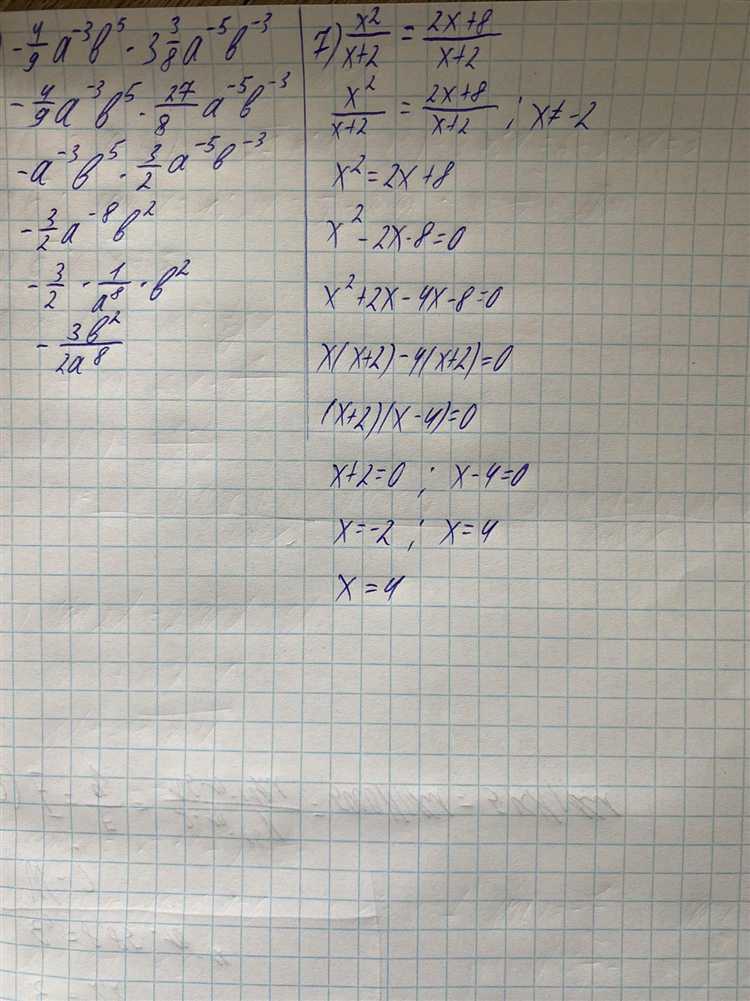 -4/9 a⁻³b⁵ · 3 3/8 a⁻⁵b⁻³
-4/9 a⁻³b⁵ · 27/8 a⁻⁵b⁻³
-a⁻³b⁵ · 3/2 a⁻⁵b⁻³
-3/2 a⁻⁸b²
-3/2 · 1/a⁸ · b²
-3b²/2a⁸
7) x²/x+2 = 2x+8/x+2
x²/x+2 = 2x+8/x+2 ; x≠-2
x²=2x+8
x²-2x-8=0
x²+2x-4x-8=0
x(x+2)-4(x+2)=0
(x+2)(x-4)=0
x+2=0 ; x-4=0
x=-2 ; x=4
x=4